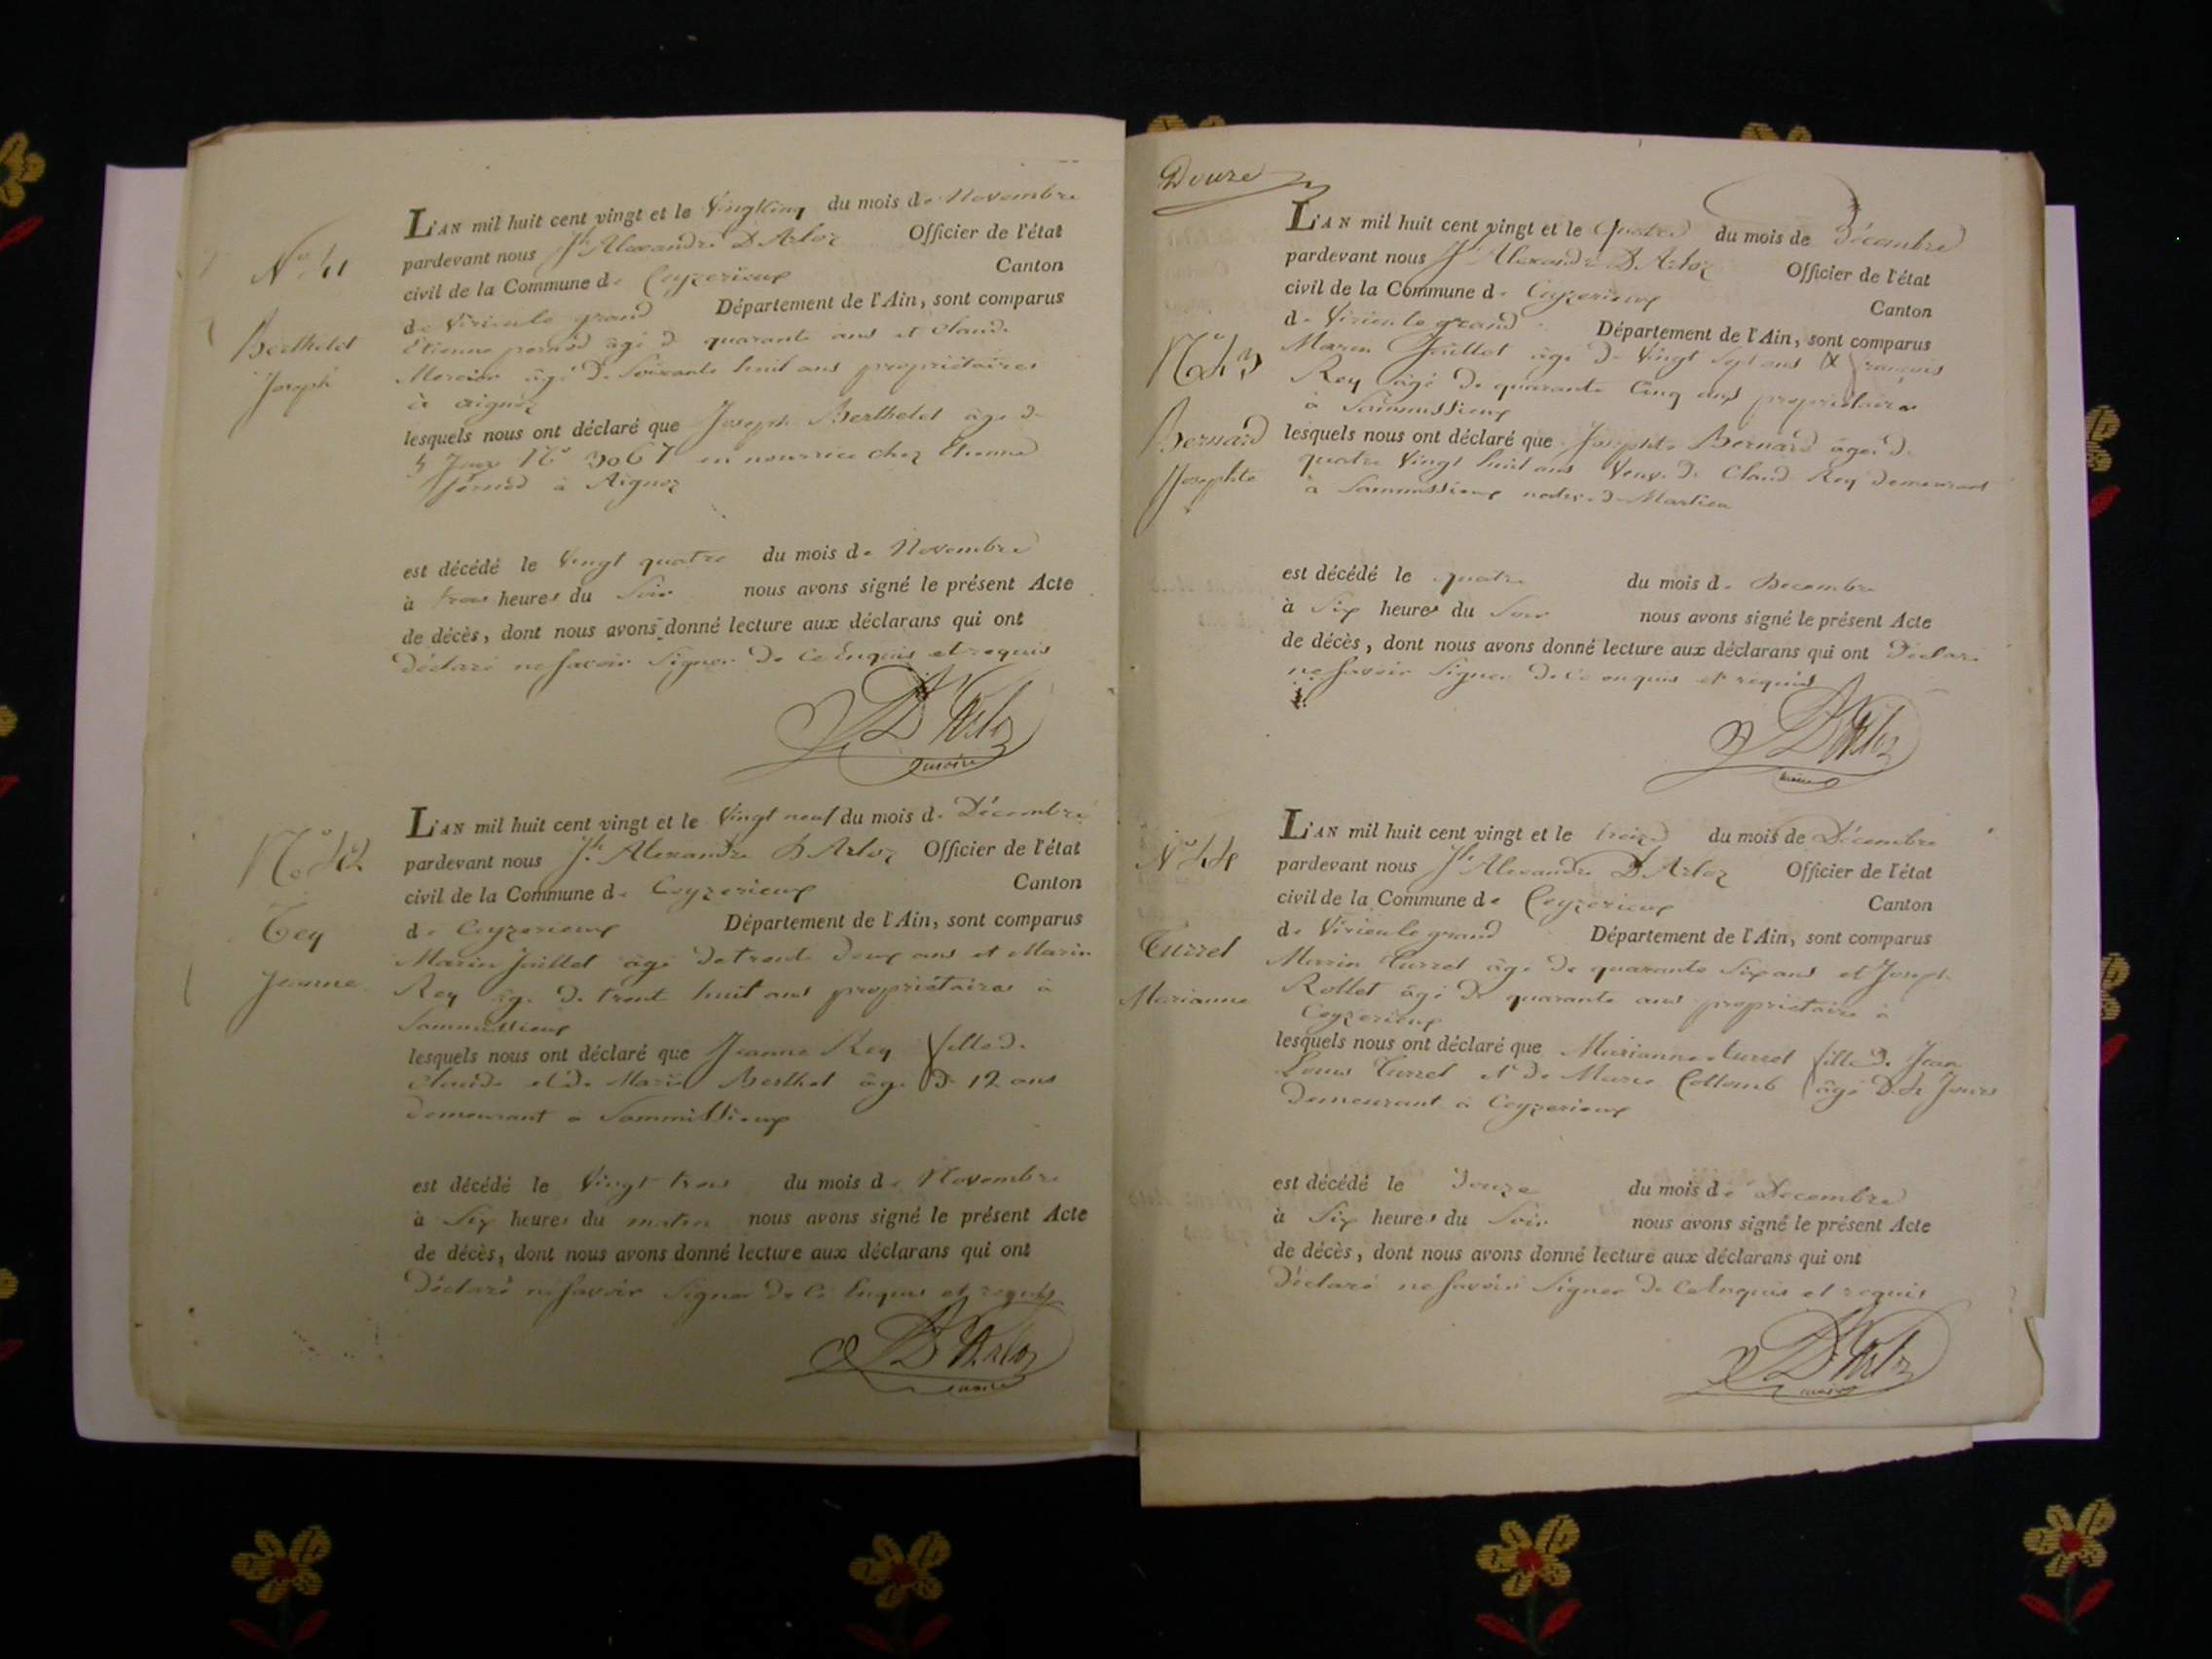 N° 41
Berthelet
Joseph
L'AN mil huit cent vingt et le vingt cinq du mois de Novembre
pardevant nous Jh Alexandre D'Arloz Officier de l'état
civil de la Commune de Ceyzerieux Canton
de Virieu le grand Département de l'Ain, sont comparus
Etienne âgé de quarante ans et Claude
Mercier âgé de Soixante huit ans propriétaires
à aignoz
lesquels nous ont déclaré que Joseph Berthelet âgé de
5 Jours N° 3067 en nourrice chez Etienne
à Aignoz
est décédé le Vingt quatre du mois de Novembre
à trois heures du Soir nous avons signé le présent Acte
de décès, dont nous avons donné lecture aux déclarans qui ont
déclaré ne Savoir Signer de ce Enquis et requis
D'Arloz
maire
N° 42
Rey
Jeanne
L'AN mil huit cent vingt et le Vingt neuf du mois de Décembre
pardevant nous Jh Alexandre D'Arloz Officier de l'état
civil de la Commune de Ceyzerieux Canton
de Ceyzerieux Département de l'Ain, sont comparus
Marin Juillet âgé de trente deux ans et Marin
Rey âgé de trente huit ans propriétaires à
Sammissieux
lesquels nous ont déclaré que Jeanne Rey fille de
Claude et de Marie Berthet âgé de 12 ans
demeurant à Sammissieux
est décédé le Vingt trois du mois de Novembre
à Six heures du matin nous avons signé le présent Acte
de décès, dont nous avons donné lecture aux déclarans qui ont
Déclaré ne Savoir Signer de ce Enquis et requis
D'Arloz
maire
Douze
N° 43
Bernard
Josephte
L'AN mil huit cent vingt et le Quatre du mois de Décembre
pardevant nous Jh Alexandre D'Arloz Officier de l'état
civil de la Commune de Ceyzerieux Canton
de Virieu le grand Département de l'Ain, sont comparus
Marin Juillet âgé de Vingt Sept ans & François
Rey âgé de quarante Cinq ans propriétaires
à Sammissieux
lesquels nous ont déclaré que Josephte Bernard âgé de
quatre Vingt huit ans Veuve de Claude Rey demeurant
à Sammissieux native de
est décédé le quatre du mois de Decembre
à Six heures du Soir nous avons signé le présent Acte
de décès, dont nous avons donné lecture aux déclarans qui ont Déclaré
ne Savoir Signer de ce enquis et requis
D'Arloz
maire
N° 44
Turrel
Marianne
L'AN mil huit cent vingt et le treize du mois de Décembre
pardevant nous Jh Alexandre D'Arloz Officier de l'état
civil de la Commune de Ceyzerieux Canton
de Virieu le grand Département de l'Ain, sont comparus
Marin Turrel âgé de quarante Six ans et Joseph
Rollet âgé de quarante ans propriétaire à
Ceyzerieux
lesquels nous ont déclaré que Marianne turrel fille de Jean
Louis Turrel et de Marie Collomb âgé De 4 Jours
Demeurant à Ceyzerieux
est décédé le Douze du mois de Decembre
à Six heures du Soir nous avons signé le présent Acte
de décès, dont nous avons donné lecture aux déclarans qui ont
Déclaré ne Savoir Signer de ce Enquis et requis
D'Arloz
maire